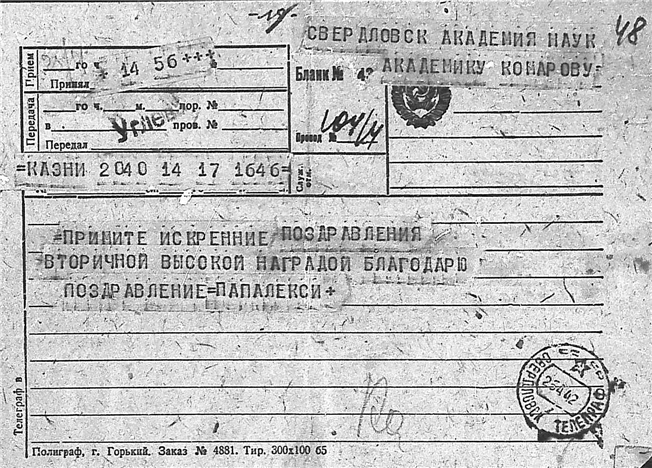 48
СВЕРДЛОВСК АКАДЕМИЯ НАУК
АКАДЕМИКУ КОМАРОВУ=
Прием
го ч.
14 56+++
Принял
Бланк №
Передача
го ч. м. пор. №
в пров. №
Передал
Провод №
104/4
=КАЗНИ 2040 14 17 1646=
Служ. отм.
=ПРИМИТЕ ИСКРЕННИЕ ПОЗДРАВЛЕНИЯ
ВТОРИЧНОЙ ВЫСОКОЙ НАГРАДОЙ БЛАГОДАРЮ
ПОЗДРАВЛЕНИЕ=ПАПАЛЕКСИ+
Телеграф в
СВЕРДЛОВСК
ТЕЛЕГРАФ
Полиграф, г. Горький. Заказ № 4881. Тир. 300x100 65